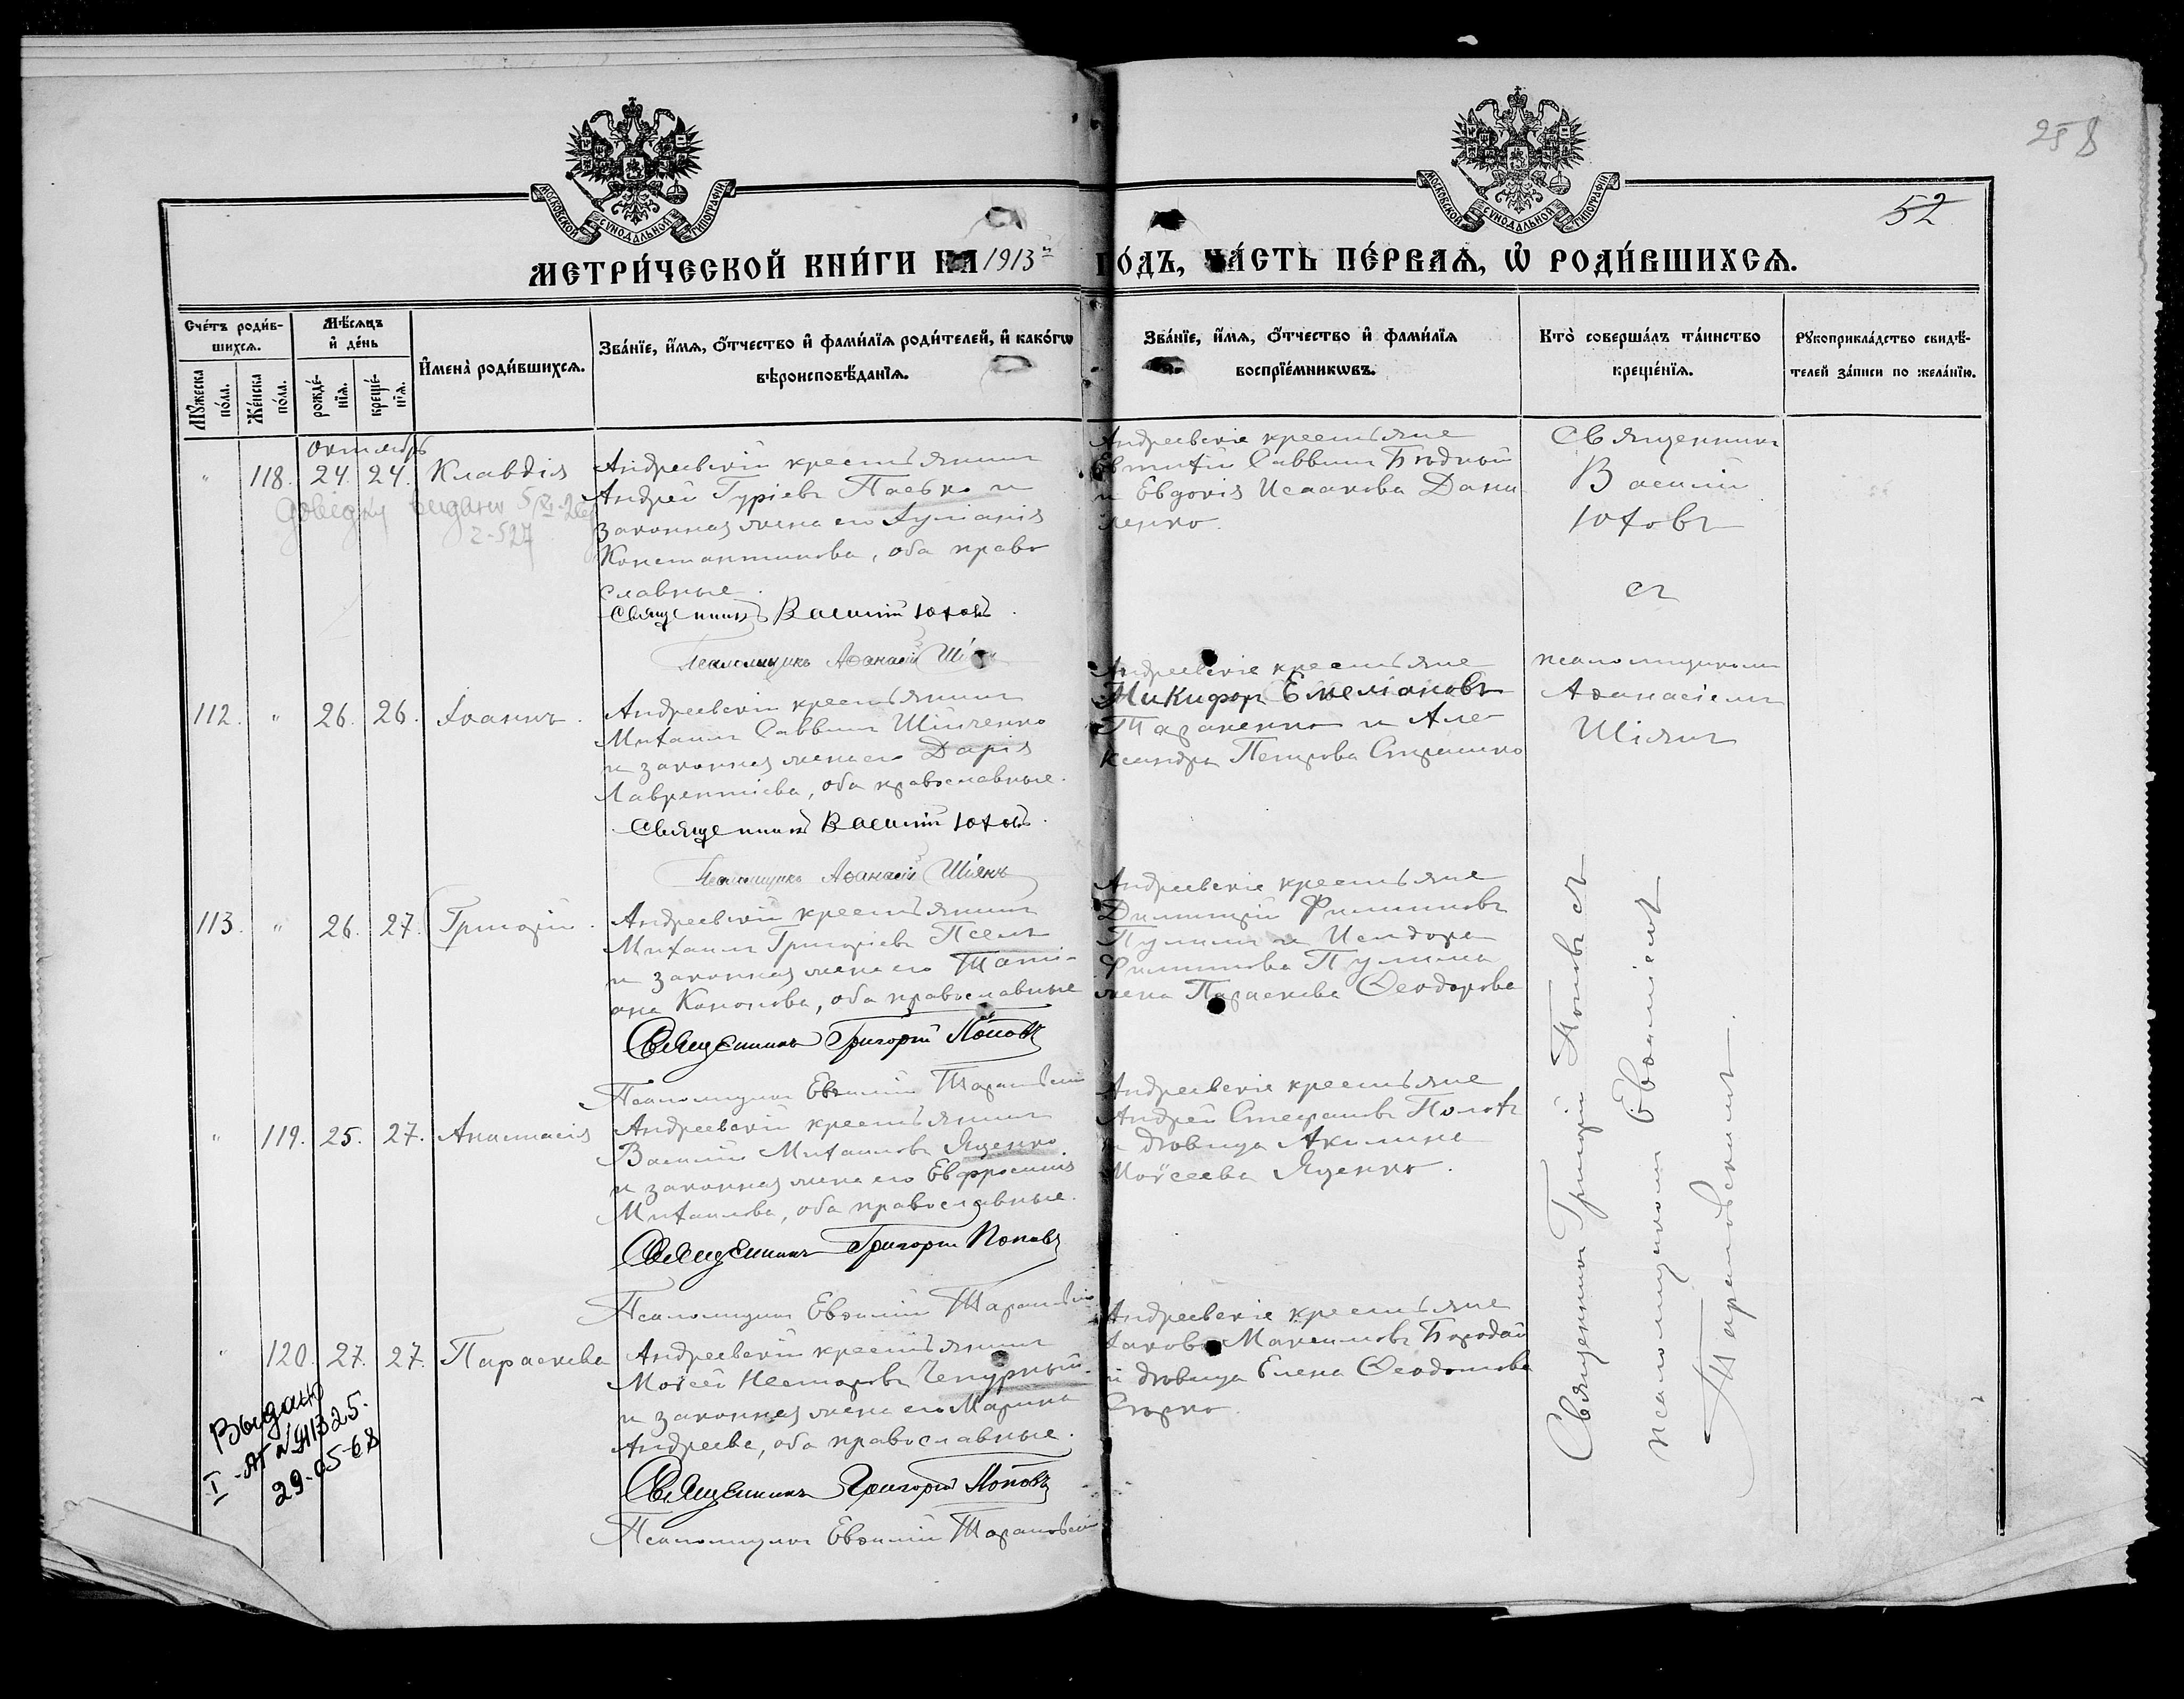 258
52
МОСКОВСКОЙ СѴНОДАЛЬНОЙ ТИПОГРАФІИ
МОСКОВСКОЙ СѴНОДАЛЬНОЙ ТИПОГРАФІИ
МЕТРИ́ЧЕСКОЙ КНИ́ГИ НА 1913й ГО́ДЪ, ЧА́СТЬ ПЕ́РВАѦ, Ѡ҆ РОДИ́ВШИХСѦ.
Сче́тъ роди́в-
шихсѧ.
Мꙋ́жеска по́ла.
Же́нска по́ла.
Мѣ́сѧцъ
и҆ де́нь
рожде́-
нїѧ.
креще́-
нїѧ.
И҆мена̀ роди́вшихсѧ.
Зва́нїе, и҆́мѧ, ѻ҆́тчество и҆ фами́лїѧ роди́телей, и҆ како́гѡ
вѣроисповѣ́данїѧ.
Зва́нїе, и҆́мѧ, ѻ҆́тчество и҆ фами́лїѧ
воспрїе́мникѡвъ.
Кто̀ соверша́лъ та́инство
креще́нїѧ.
Рꙋкоприкла́дство свидѣ́-
телей за́писи по жела́нїю.
октябрь
" 118. 24. 24. Клавдія
довідку видано
2-527
Андреевскій крестьянинъ
Андрей Гуріевъ Пасько и
законная жена его Іуліанія
Константинова, оба право
славные.
Священникъ Василій Юховъ.
Псаломщикъ Аѳанасій Шіянъ
Андреевскіе крестьяне
Евтихій Саввинъ Бѣдный
и Евдокія Исаакова Дани
ленко.
Священникъ
Василій
Юховъ
съ
псаломщикомъ
Аѳанасіемъ
Шіянъ
112. " 26. 26. Іоаннъ.
Андреевскій крестьянинъ
Михаилъ Саввинъ Шійченко
и законная жена его Дарія
Лаврентіева, оба православные.
Священникъ Василій Юховъ.
Псаломщикъ Аѳанасій Шіянъ
Андреевскіе крестьяне
Никифоръ Емеліановъ
Тараненко и Але
ксандра Петрова Страшко
113. " 26. 27. Григорій.
Андреевскій крестьянинъ
Михаилъ Григоріевъ Псёлъ
и законная жена его Таті-
ана Кононова, оба православные
Священникъ Григорій Поповъ
Псаломщикъ Евѳимій Тарановскій
Андреевскіе крестьяне
Димитрій Филипповъ
Пулима и Исидора
Филиппова Пулима
жена Параскева Ѳеодорова
Священникъ Григорій Поповъ съ
псаломщикомъ Евѳиміемъ
Тарановскимъ.
" 119. 25. 27. Анастасія
Андреевскій крестьянинъ
Василій Михаиловъ Яценко
и законная жена его Евфросинія
Михаилова, оба православные.
Священникъ Григорій Поповъ
Псаломщикъ Евѳимій Тарановскій
Андреевскіе крестьяне
Андрей Стефановъ Полохъ
и дѣвица Акилина
Моѵсеева Яценко.
" 120. 27. 27. Параскева
Выдано
I-АГ №411325.
29-05-68
Андреевскій крестьянинъ
Моѵсей Несторовъ Чепурный
и законная жена его Марина
Андреева, оба православные.
Священникъ Григорій Поповъ
Псаломщикъ Евѳимій Тарановскій
Андреевскіе крестьяне
Іаковъ Максимовъ Бородай
и дѣвица Елена Ѳеодотова